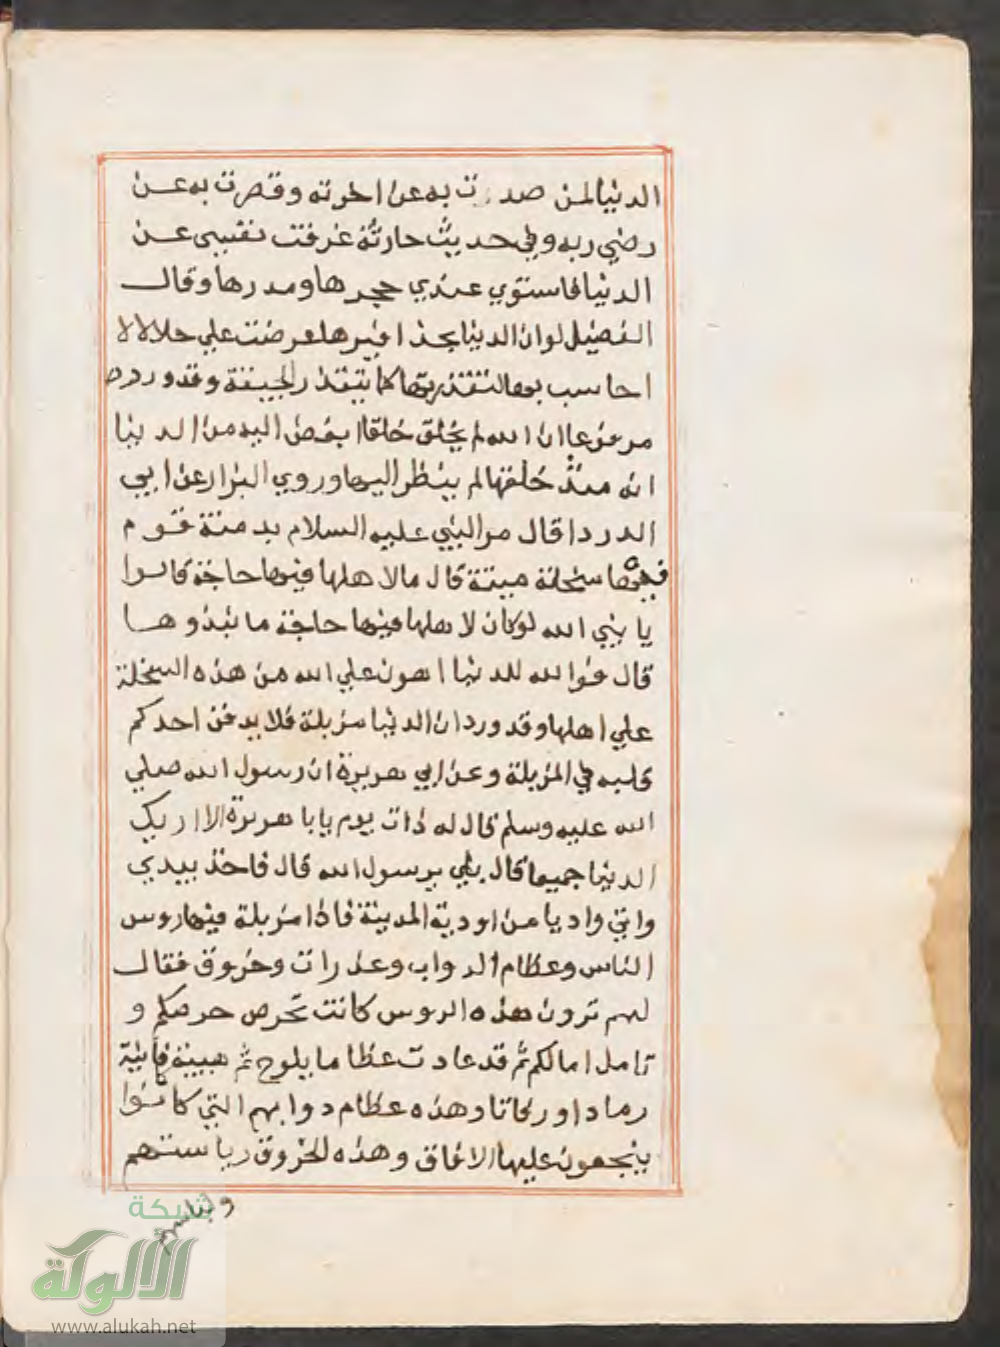 الدنيا لمن صدت به عن اخرته وقصرت به عن
رضي ربه وفي حديث حارثة عزفت نفسي عن
الدنيا فاستوي عندي حجرها ومدرها وقال
الفضيل لو ان الدنيا بحذافيرها عرضت علي حلالا لا
احاسب بها لتقذرتها كما يتقذر الجيفة وقد ورد
مرفوعا ان الله لم يخلق خلقا ابغض اليه من الدنيا
انه منذ خلقها لم ينظر اليها وروي البزار عن ابي
الدردا قال مر النبي عليه السلام بدمنة قوم
فيها سخلة ميتة قال ما لاهلها فيها حاجة قالوا
يا نبي الله لو كان لاهلها فيها حاجة ما نبذوها
قال فوالله للدنيا اهون علي الله من هذه السخلة
علي اهلها وقد ورد ان الدنيا مزبلة فلا يدفن احدكم
قلبه في المزبلة وعن ابي هريرة ان رسول الله صلي
الله عليه وسلم قال له ذات يوم يابا هريرة الا اريك
الدنيا جميعا قال بلي يرسول الله قال فاخذ بيدي
واتي واديا من اودية المدينة فاذا مزبلة فيها روس
الناس وعظام الدواب وعذرات وخروق فقال
لهم ترون هذه الروس كانت تحرص حرصكم و
تامل امالكم ثم قد عادت عظاما يلوح ثم هيينة فانية
رمادا ورفاتا وهذه عظام دوابهم التي كانوا
ينجعون عليها الافاق وهذه الخروق رياستهم
شبكة
الألوكة
www.alukah.net